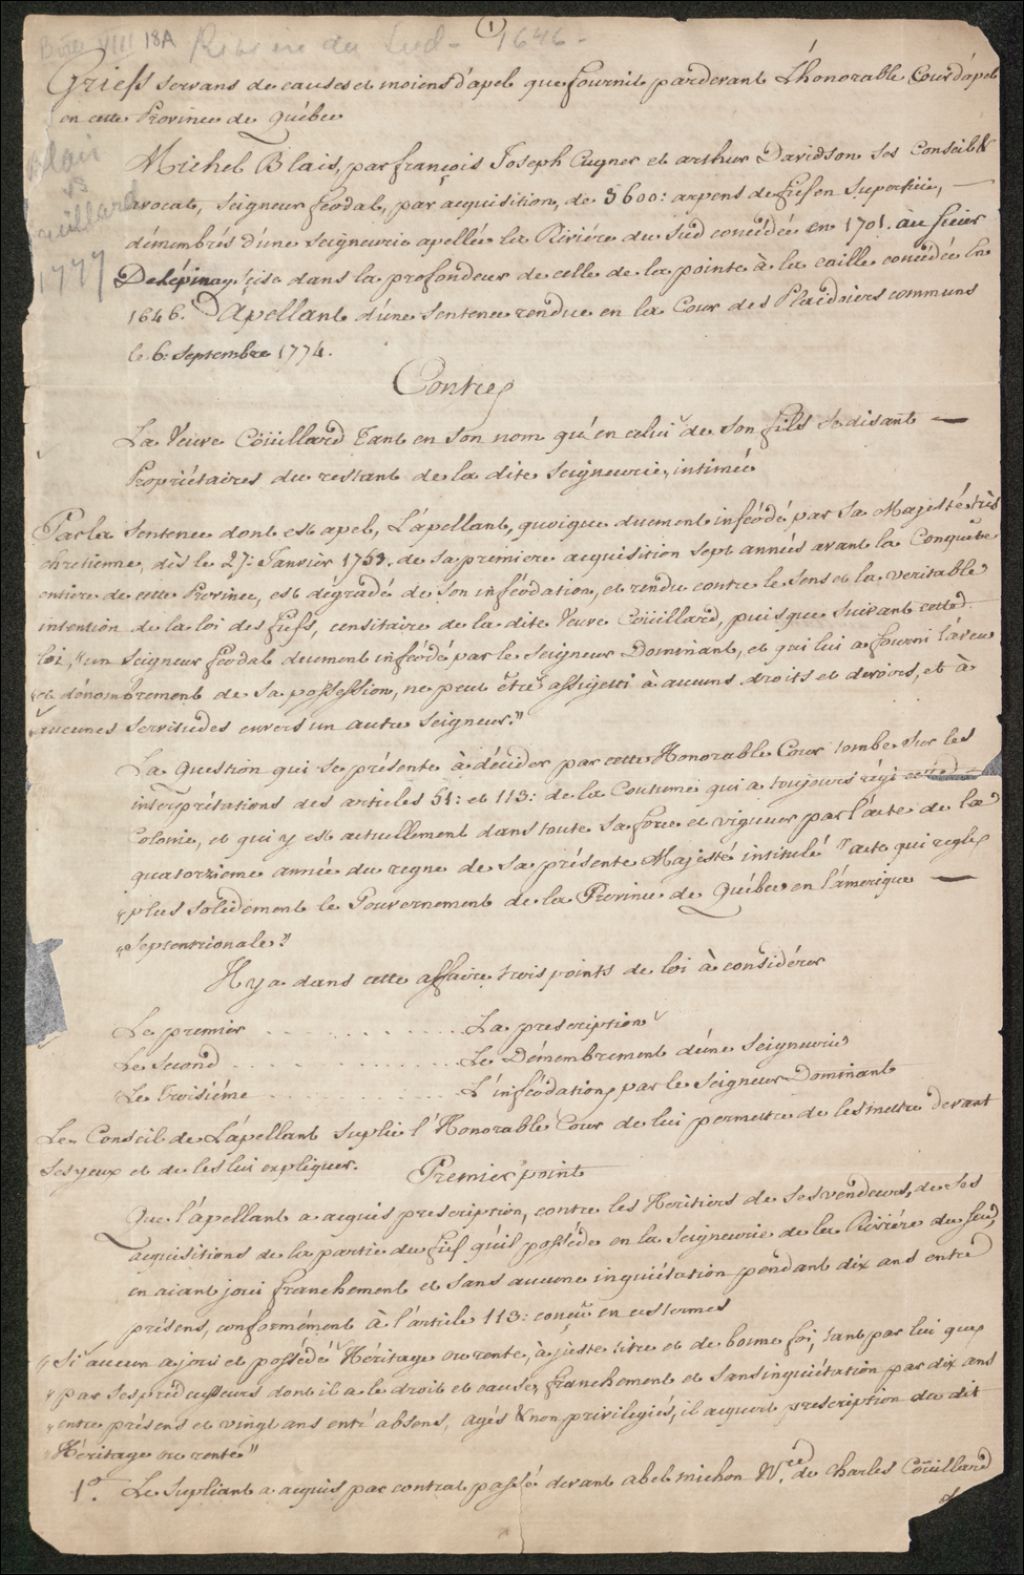 1
Boite VIII 18A Rivière du Sud - 1646 -
Griefs servans de causes et moiens d'apel que fournit pardevant L'honorable Cour d'apel
en cette Province de Québec
Blais
vs
Couillard
1777
Michel Blais, par françois Joseph Cugnet et arthur Davidson ses Conseils &
avocat, Seigneur féodal, par acquisition, de 3600: arpens de fief en Superficie, —
démembrés d'une Seigneurie apellée la Riviére du Sud concédée en 1701. au sieur
Delépinay, sise dans la profondeur de celle de la pointe à la caille concédée En
1646. Apellant d'une Sentence rendue en la Cour des Plaidoiers communs
le 6: Septembre 1774.
Contre
La Veuve Coüillard Tant en son nom qu'en celui de son fils Se disant —
Propriétaires du restant de la dite Seigneurie, intimée
Par la Sentence dont est apel, L'apellant, quoique duement inféodé par Sa Majesté très
chretienne, dès le 27: Janvier 1753. de sa premiere acquisition sept années avant la Conquête
entiere de cette Province, est dégradé de son inféodation, et rendu contre le Sens et la veritable
intention de la loi des fiefs, censitaire de la dite Veuve Coüillard, puisque suivant cette d.
loi, "un Seigneur féodal duement inféodé par le Seigneur Dominant, et qui lui a fourni l'aveu
"et dénombrement de sa possession, ne peut être assujetti à aucuns droits et devoirs, et à
"aucunes servitudes envers un autre Seigneur."
La Question qui se présente à décider par cette Honorable Cour tombe sur les
interprétations des articles 51: et 113: de la Coutume qui a toujours régi cette d.
Colonie, et qui y est actuellement dans toute Sa force et vigueur par l'acte de la
quatorzieme année du regne de Sa présente Majesté intitulé "acte qui regle
"plus solidement le Gouvernement de la Province de Québec en l'amerique —
"Septentrionale."
Il y a dans cette affaire trois points de loi à considérer
Le premier . . . . . . . . . . La prescription
Le Second . . . . . . . . . . . . Le Démembrement d'une Seigneurie
Le Troisiéme . . . . . . . . . . L'inféodation par le Seigneur Dominant
Le Conseil de L'apellant Suplie l'Honorable Cour de lui permettre de les mettre devant
Ses yeux et de les lui expliquer.
Premier point
Que l'apellant a acquis prescription, contre les Heritiers de Ses vendeurs, de ses
acquisitions de la partie du fief qu'il posséde en la Seigneurie de la Riviére du Sud,
en aiant joui franchement et Sans aucune inquiétation pendant dix ans entre
présens, conformément à l'article 113: conçu en ces termes
"Si aucun a joui et possédé Héritage ou rente, à juste titre et de bonne foi, tant par lui que
"par Ses prédecesseurs dont il a le droit et cause, franchement et sans inquiétation par dix ans
"entre présens et vingt ans entre absens, agés & non privilegiés, il acquert prescription du dit
"Héritage ou rente"
1°. Le Supliant a acquis par contrat passé devant abel michon N.re de Charles Coüillard